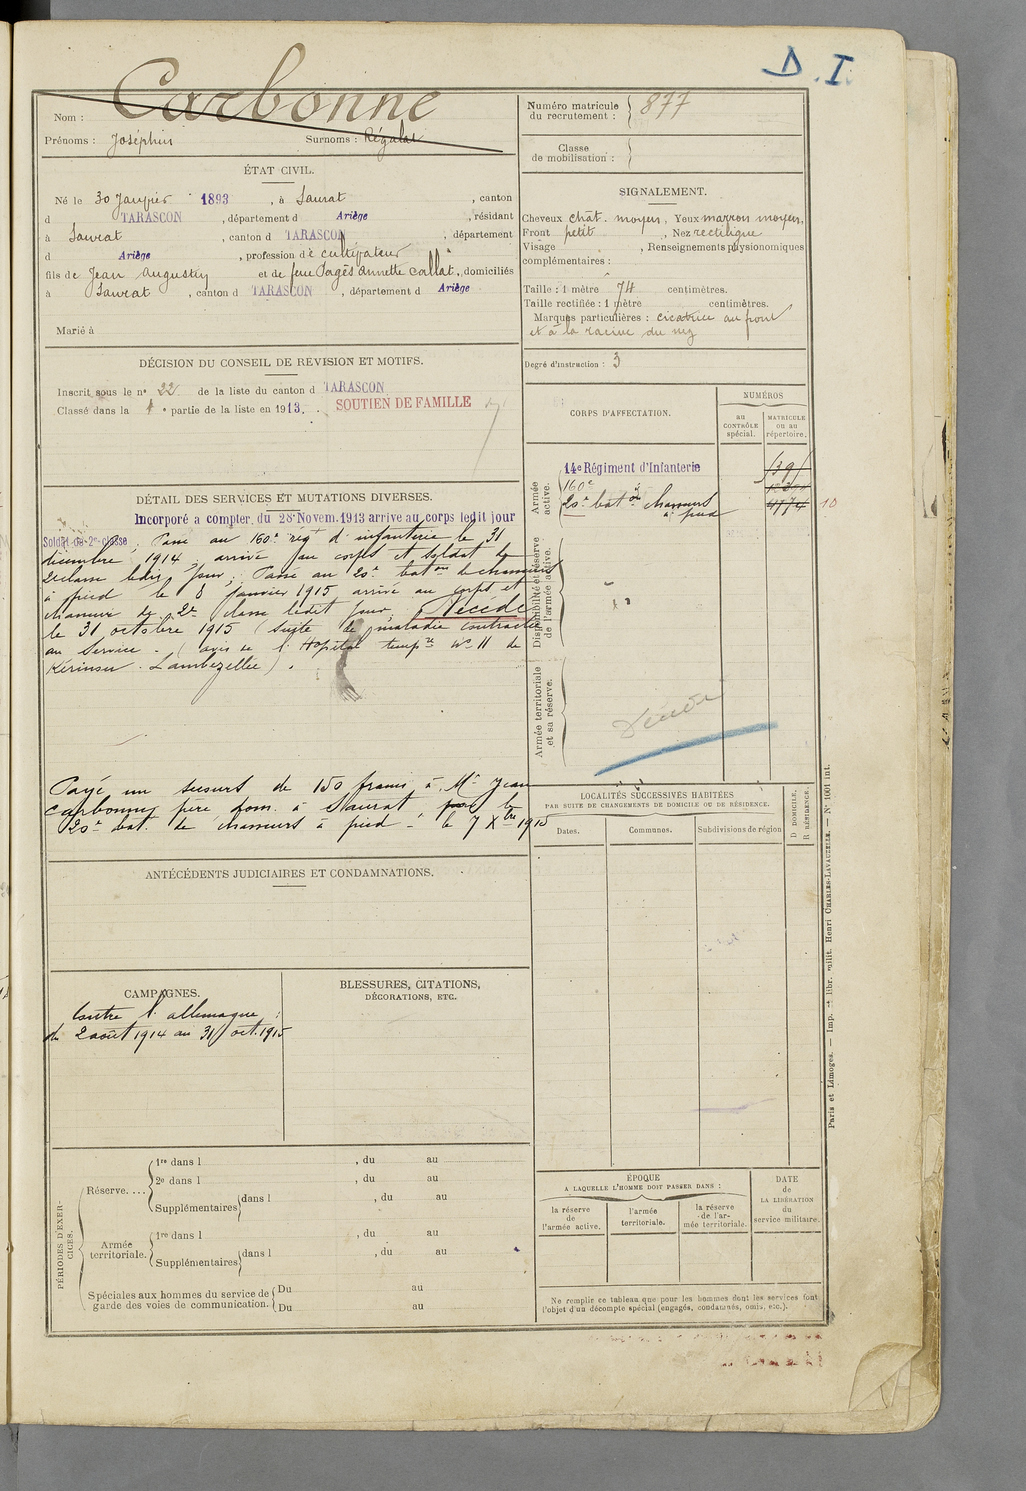 D. I.
Carbonne
Nom :
Prénoms : Joséphin Surnoms : Régalat
Numéro matricule du recrutement : 877
Classe de mobilisation :
ÉTAT CIVIL.
Né le 30 Janvier 1893, à Saurat, canton
d TARASCON, département d Ariège, résidant
à Saurat, canton d TARASCON, département
d Ariège, profession de cultivateur
fils de Jean Augustin et de feue Pagès Annette Callat, domiciliés
à Saurat, canton d TARASCON, département d Ariège
Marié à
SIGNALEMENT.
Cheveux chat. moyen, Yeux marron moyen,
Front petit, Nez rectiligne
Visage , Renseignements physionomiques
complémentaires :
Taille : 1 mètre 74 centimètres.
Taille rectifiée : 1 mètre centimètres.
Marques particulières : cicatrice au front
et à la racine du nez
Degré d'instruction : 3
DÉCISION DU CONSEIL DE RÉVISION ET MOTIFS.
Inscrit sous le nº 22 de la liste du canton d TARASCON
Classé dans la 1e partie de la liste en 1913.
SOUTIEN DE FAMILLE
CORPS D'AFFECTATION.
NUMÉROS
au CONTRÔLE spécial.
MATRICULE ou au répertoire.
Armée active.
14e Régiment d'Infanterie
160e
20e bat on chasseurs
à pied 4774 10
Disponibilité et réserve de l'armée active.
Armée territoriale et sa réserve.
DÉTAIL DES SERVICES ET MUTATIONS DIVERSES.
Incorporé à compter du 28 Novem. 1913 arrivé au corps ledit jour
Soldat de 2e classe. Passé au 160e rég t d'infanterie le 31
décembre 1914, arrivé au corps et soldat de
2e classe ledit jour. Passé au 20e bat on de chasseurs
à pied le 8 janvier 1915 arrivé au corps et
chasseur de 2e classe ledit jour. Décédé
le 31 octobre 1915 (suite de maladie contractée
au service. (avis de l'Hopital temp re nº 11 de
Kérinou. Lambezellec).
Payé un secours de 150 francs à Mr Jean
Carbonne père dom. à Saurat par le
20e bat. de chasseurs à pied - le 7 Xbre 1915
LOCALITÉS SUCCESSIVES HABITÉES
PAR SUITE DE CHANGEMENTS DE DOMICILE OU DE RÉSIDENCE.
Dates. Communes. Subdivisions de région
D DOMICILE.
R RÉSIDENCE.
ANTÉCÉDENTS JUDICIAIRES ET CONDAMNATIONS.
CAMPAGNES.
Contre l'allemagne :
du 2 août 1914 au 31 oct. 1915
BLESSURES, CITATIONS,
DÉCORATIONS, ETC.
PÉRIODES D'EXERCICES.
Réserve....
1re dans l , du au
2e dans l , du au
Supplémentaires dans l , du au
Armée territoriale.
1re dans l , du au
Supplémentaires dans l , du au
Spéciales aux hommes du service de Du au
garde des voies de communication. Du au
ÉPOQUE
A LAQUELLE L'HOMME DOIT PASSER DANS :
la réserve de l'armée active.
l'armée territoriale.
la réserve de l'armée territoriale.
DATE de LA LIBÉRATION du service militaire.
Ne remplir ce tableau que pour les hommes dont les services font
l'objet d'un décompte spécial (engagés, condamnés, omis, etc.).
Paris et Limoges. — Imp. et libr. milit. Henri CHARLES-LAVAUZELLE. — Nº 1001 int.